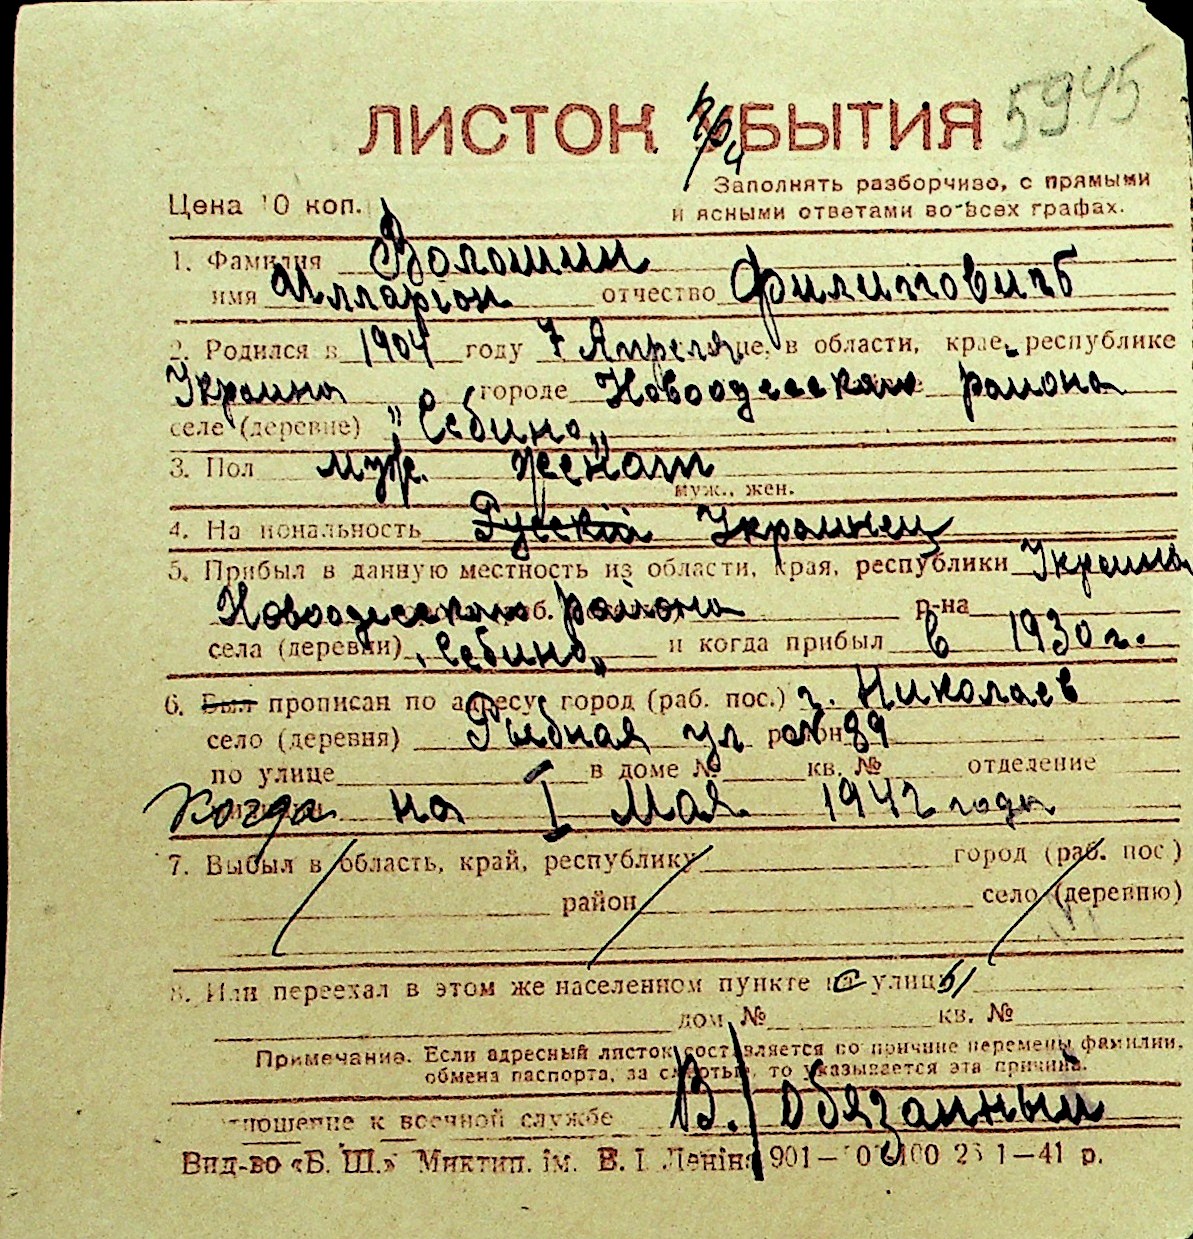 5945
ЛИСТОК ПРИБЫТИЯ
Заполнять разборчиво, с прямыми
Цена 10 коп.
и ясными ответами во всех графах.
1. Фамилия Волошин
имя Илларіон отчество Филипповичъ
2. Родился в 1904 году 7 Апреля в области, крае, республике
Украина городе Новоодесским района
селе (деревне) „Себино„
3. Пол муж. женат
муж., жен.
4. Национальность Русскій Украинец
5. Прибыл в данную местность из области, края, республики Украина
Новоодесского района р-на
села (деревни) „Себино„ и когда прибыл в 1930 г.
6. Был прописан по адресу: город (раб. пос.) г. Николаев
село (деревня) Рыбная ул район 89
по улице в доме № кв. № отделение
Когда на 1 Мая 1942 года
7. Выбыл в область, край, республику город (раб. пос.)
район село (деревню)
8. Или переехал в этом же населенном пункте с улицы
дом № кв. №
Примечание. Если адресный листок составляется по причине перемены фамилии,
обмена паспорта, за смертью, то указывается эта причина.
отношение к военной службе В./обязанный
Вид-во «Б. Ш.» Миктип. ім. В. І. Леніна 901— 23 1—41 р.